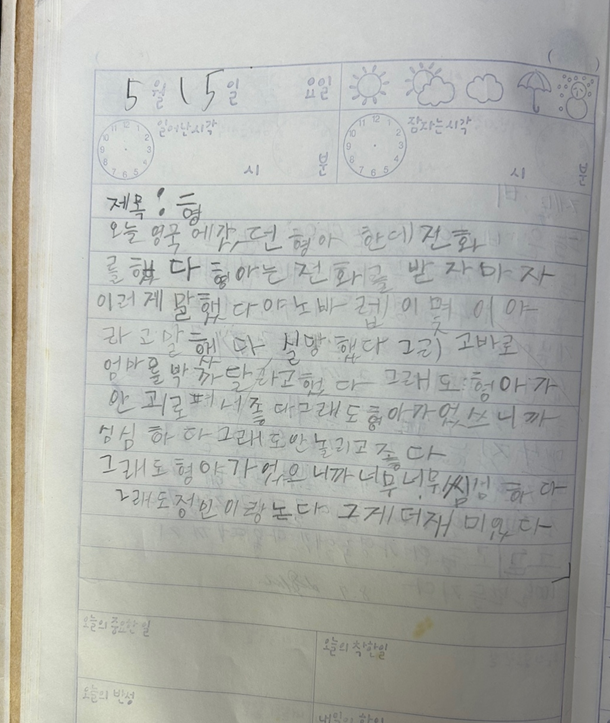 5월 15일 요일
일어난시각 잠자는시각
시 분 시 분
제목 : 형
오늘 영국에갔던 형아 한데 전화
를했다 형아는 전화를 받자마자
이러게 말했다야 노바 렙이 몇이야
라고말했다 실망했다 그리고바로
엄마을 박까달라고했다 그래도 형아가
안괴로펴서좋다그래도형아가없쓰니까
심심하다그래도안놀리고좋다
그래도형아가없으니까너무너무씰렁하다
그래도정인이랑논다 그게더재미있다
오늘의 중요한 일 오늘의 착한일
오늘의 반성 내일의 할일